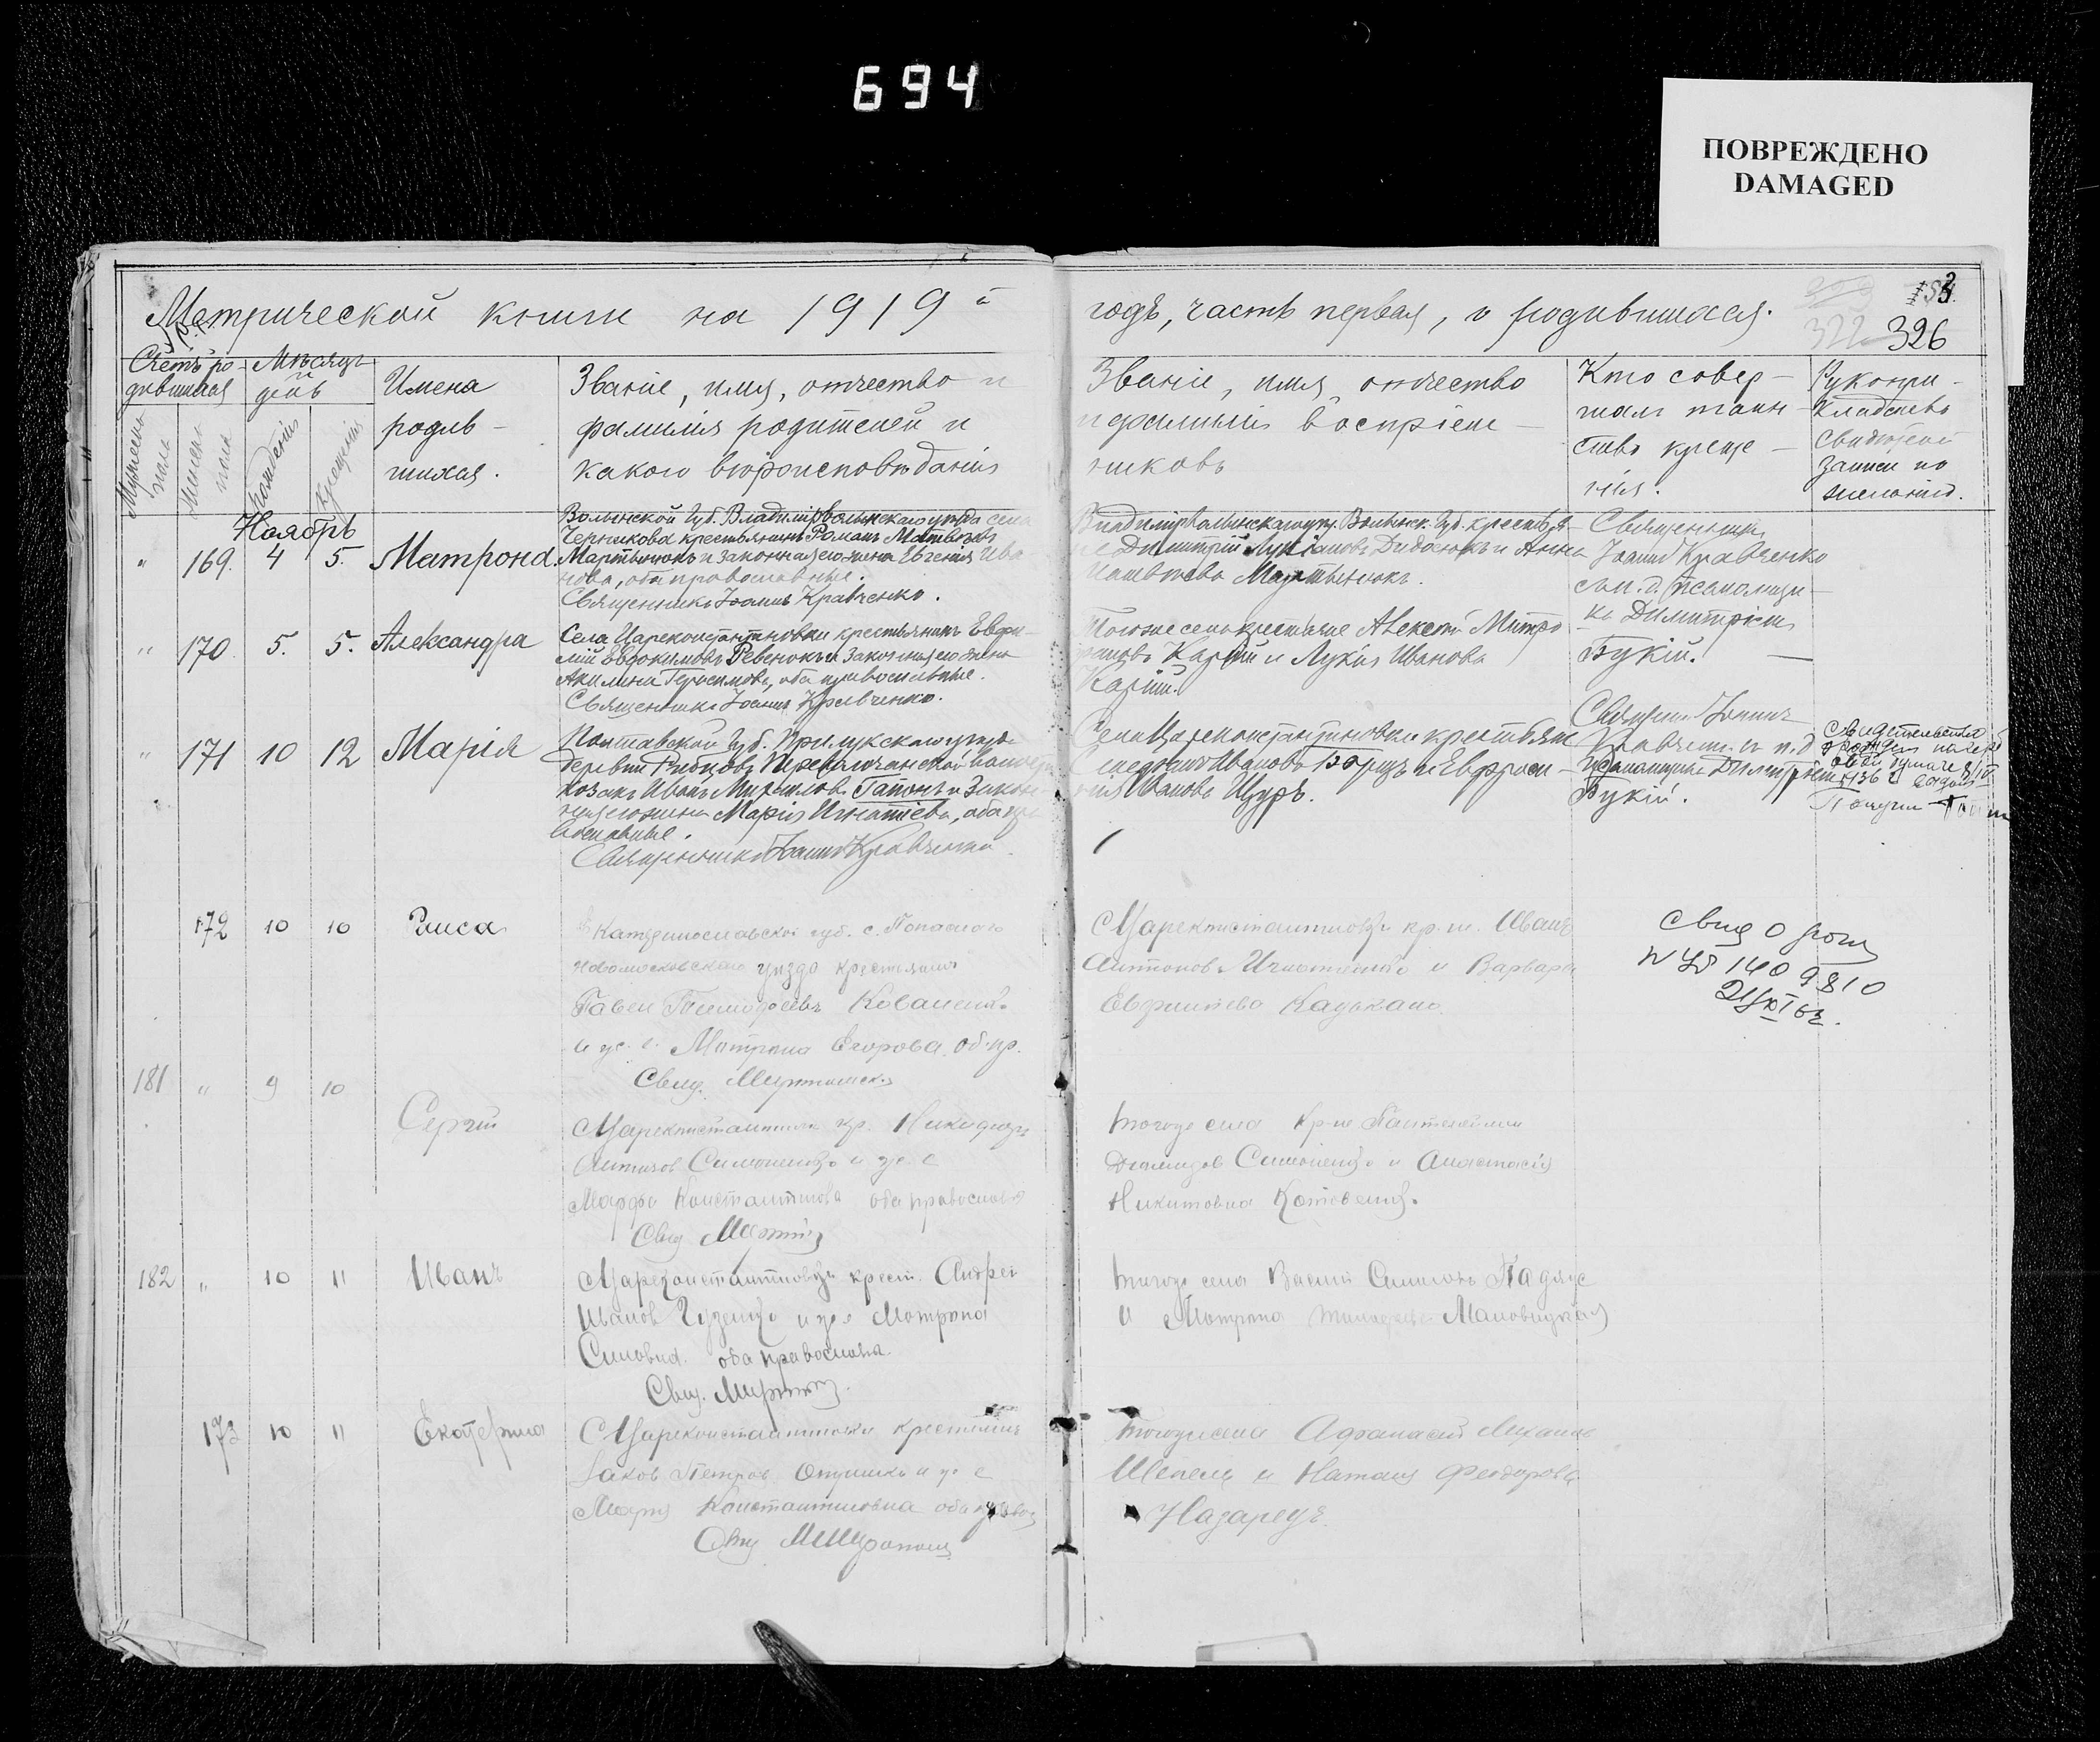 694
ПОВРЕЖДЕНО
DAMAGED
Метрической книги на 1919 й
годъ, часть первая, о родившихся.
326
Счетъ ро-
дившихся
Мѣсяцъ
и
день
Имена
родив-
шихся.
Званіе, имя, отчество и
фамилія родителей и
какого вѣроисповѣданія
Званіе, имя, отчество
и фамилія воспріем-
никовъ
Кто совер-
шалъ таин-
ство креще-
нія.
Рукопри-
кладство
свидѣтелей
записи по
желанію.
Мужеска
пола
Женска
пола
Рожденія
Крещенія
Ноябрь
" 169. 4 5. Матрона.
Волынской губ. Владимірволынскаго уѣзда села
Черникова крестьянинъ Романъ Матвѣевъ
Мартынюкъ и законная его жена Евгенія Ива
нова, оба православные.
Священникъ Іоаннъ Кравченко.
Владимірволынскаго уѣз. Волынск. губ. крестья
не Димитрій Лукіановъ Дидосюкъ и Анна
Мартынюкъ.
Священникъ
Іоаннъ Кравченко
съ и. д. псаломщи-
ка Димитріемъ
Букій.
" 170 5. 5. Александра
Села Цареконстантиновки крестьянинъ Евфи-
мій Евдокимовъ Ревенокъ и законная его жена
Акилина Герасимова, оба православные.
Священникъ Іоаннъ Кравченко.
Тогоже села крестьяне Алексѣй Митро
фановъ Карій и Лукія Иванова
Карій.
" 171 10 12 Марія
Полтавской губ. Прилукскаго уѣзда
деревни Рибцовъ Переволочанской волости
козакъ Иванъ Михайловъ Гапонъ и закон
ная его жена Марія Игнатіева, оба пра
вославные.
Священникъ Іоаннъ Кравченко
Села Цареконстантиновки крестьяне
Ивановъ Борщъ и Евфроси-
нія Иванова Щуръ.
Священ. Іоаннъ
Кравченко съ и. д.
псаломщика Димитріемъ
Букій.
Свидетельство
о рожден
172 10 10 Раиса
Катеринославской губ. с. Попасного
Новомосковского уѣзда крестьянинъ
Павел Тимофеевъ Коваленко
и ж. е. Матрона Егорова об. пр.
Свящ.
С Цареконстантиновки кр-не Иванъ
Антонов Игнатенко и Варвара
Евфимиева
Свид о рож
1409810
181 " 9 10
Сергій
С Цареконстантиновки кр. Никифоръ
Антонов Симоненко и ж. е
Марфа Константинова оба православ
Свящ
Тогоже села кр-не Пантелеймон
Демидов Симоненко и Анастасія
Никитовна Котовенко
182 " 10 11 Иванъ
С Цареконстантиновки крест. Андрей
Иванов Гузенко и ж е Мотрона
Симовна. оба православн.
Свящ.
Тогоже села Василій Симонов
и Мотрона Малавицкая
173 10 11 Екатерина
С Цареконстантиновки крестьянин
Іаков Петров Опушко и ж е
Марія Константиновна оба правос
Свящ
Тогоже села Афанасій Михайлов
Шепель и Наталия Феодорова
Назарець